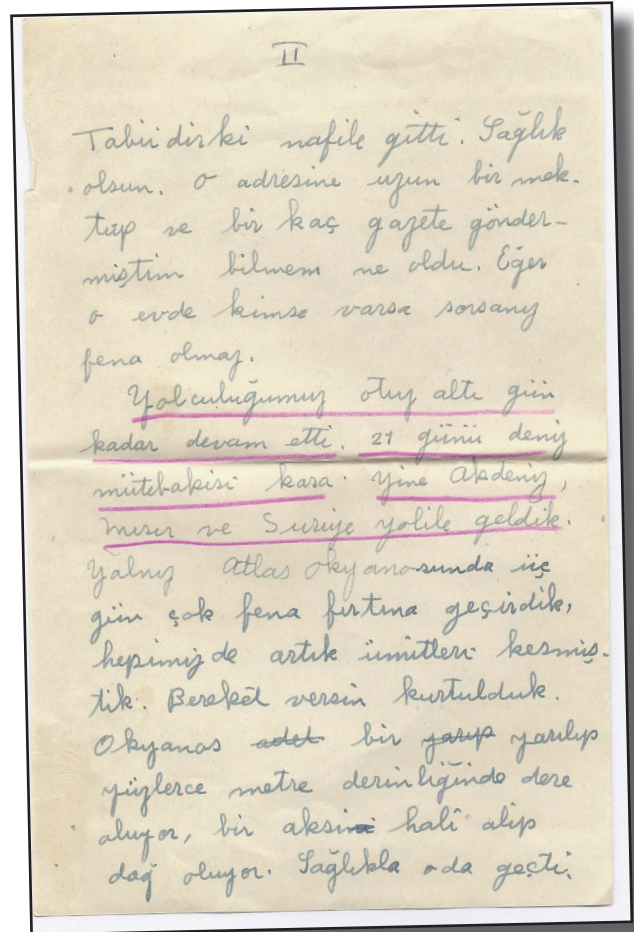 II
Tabii dirki nafile gitti. Sağlık
olsun. O adresine uzun bir mek-
tup ve bir kaç gazete gönder-
miştim bilmem ne oldu. Eğer
o evde kimse varsa sorsanız
fena olmaz.
Yolculuğumuz otuz altı gün
kadar devam etti. 21 günü deniz
mütebakisi kara. Yine Akdeniz,
Mısır ve Suriye yolile geldik.
Yalnız Atlas Okyanosunda üç
gün çok fena fırtına geçirdik,
hepimiz de artık ümitleri kesmiş-
tik. Bereket versin kurtulduk.
Okyanos adet bir yarıp yarılıp
yüzlerce metre derinliğinde dere
oluyor, bir aksi hali alıp
dağ oluyor. Sağlıkla o da geçti.